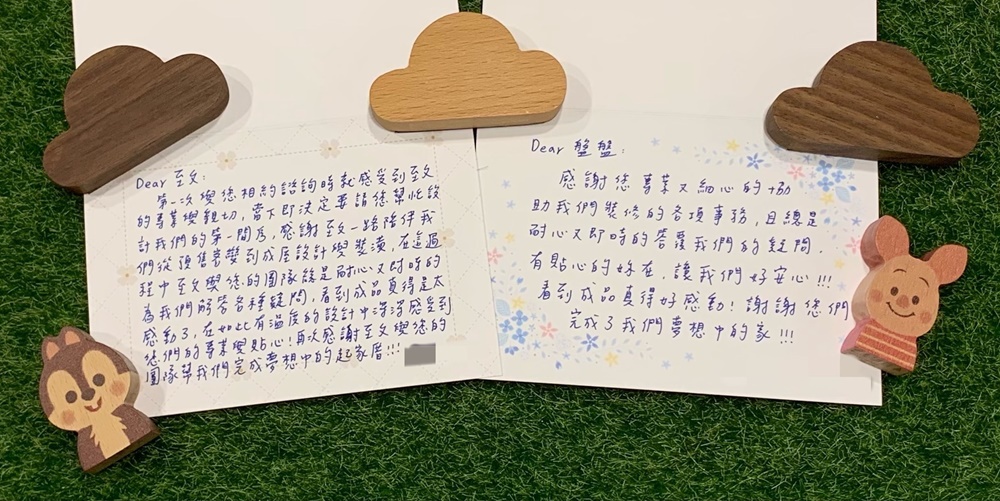 Dear 至文:
第一次與您相約諮詢時就感受到至文
的專業與親切,當下即決定要請您幫忙設
計我們的第一間房,感謝至文一路陪伴我
們從預售客變到成屋設計與裝潢,在這過
程中至文與您的團隊總是耐心又即時的
為我們解答各種疑問,看到成品真得是太
感動了,在如此有溫度的設計中深深感受到
您們的專業與貼心!再次感謝至文與您的
團隊幫我們完成夢想中的起家厝!!!
Dear 盤盤:
感謝您專業又細心的協
助我們裝修的各項事務,且總是
耐心又即時的答覆我們的疑問.
有貼心的妳在,讓我們好安心!!!
看到成品真得好感動!謝謝您們
完成了我們夢想中的家!!!